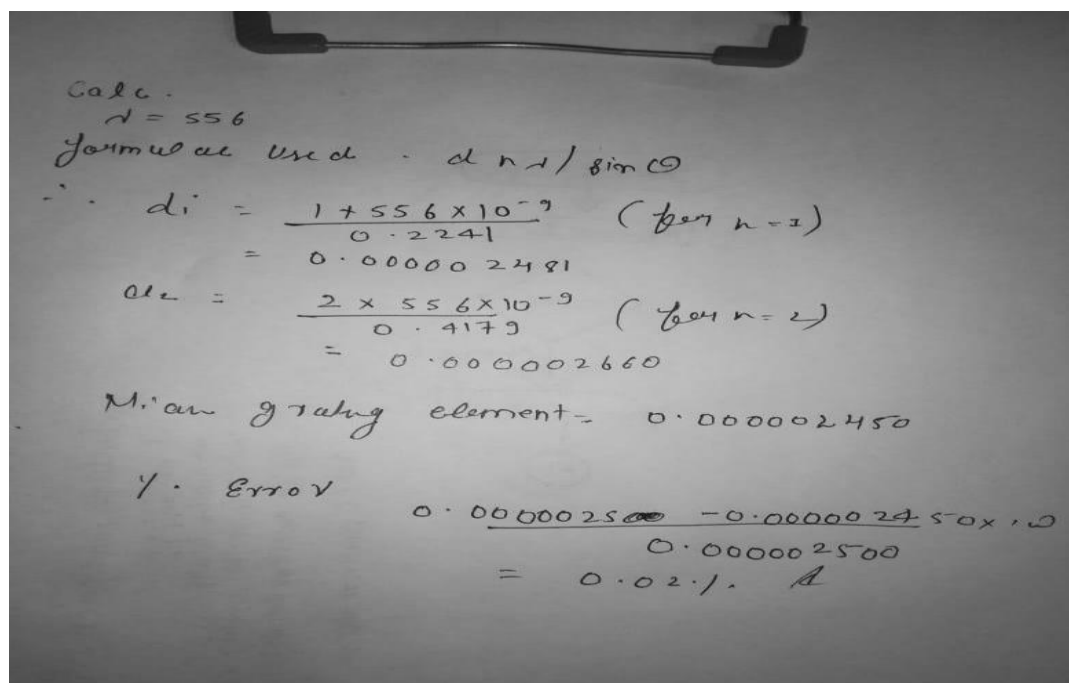 Calc.
λ = 556
formulae used . d n λ / sin θ
∴ d1 = 1 + 556 × 10-9 (for n-1)
0.2241
= 0.000002481
d2 = 2 × 556 × 10-9 (for n=2)
0.4179
= 0.000002660
Mian gratng element = 0.000002450
%. Error
0.000002500 - 0.000002450 ×
0.000002500
= 0.02%.